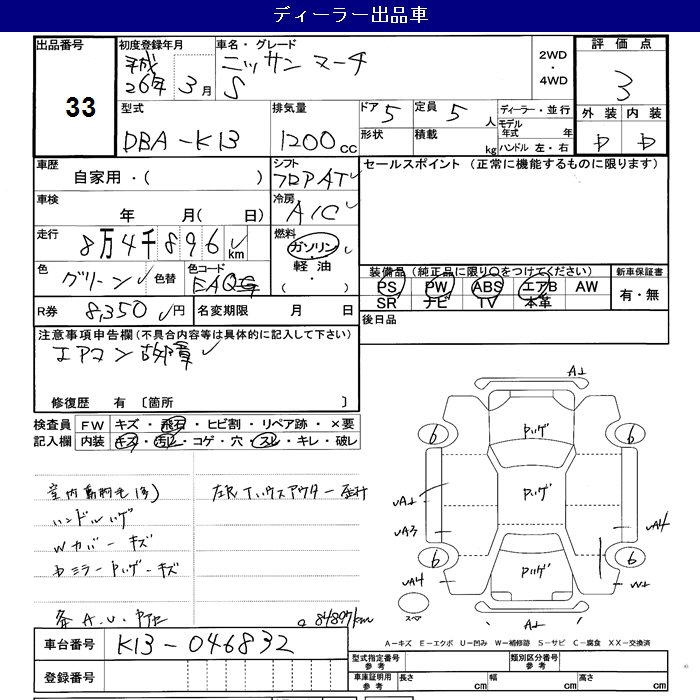 ディーラー出品車
出品番号 33
初度登録年月 平成 26年 3月
車名・グレード ニッサン マーチ S
2WD ・ 4WD
評価点 3
外装 内装
型式 DBA-K13
排気量 1200 cc
ドア 5
定員 5 人
形状
積載 kg
ディーラー・並行
モデル年式 年
ハンドル 左・右
車歴 自家用・( )
シフト フロアAT
セールスポイント (正常に機能するものに限ります)
車検 年 月( 日)
冷房 A/C
走行 8万4千896 km
燃料 ガソリン・軽油・( )
色 グリーン
色替
色コード EAQ
装備品 (純正品に限り○をつけてください)
PS PW ABS エアB AW
SR ナビ TV 本革
新車保証書 有・無
R券 8,350 円
名変期限 月 日
後日品
注意事項申告欄 (不具合内容等は具体的に記入して下さい)
エアコン故障
修復歴 有 〔箇所 〕
検査員記入欄
FW キズ・飛石・ヒビ割・リペア跡・×要
内装 キズ・汚レ・コゲ・穴・スレ・キレ・破レ
ハンドルハゲ
Wカバーキズ
A.U.
6 6 6 6
スペア
A-キズ E-エクボ U-凹み W-補修跡 S-サビ C-腐食 XX-交換済
車台番号 K13-046832
登録番号
型式指定番号 参考
類別区分番号 参考
車庫証明用 参考
長さ cm
幅 cm
高さ cm